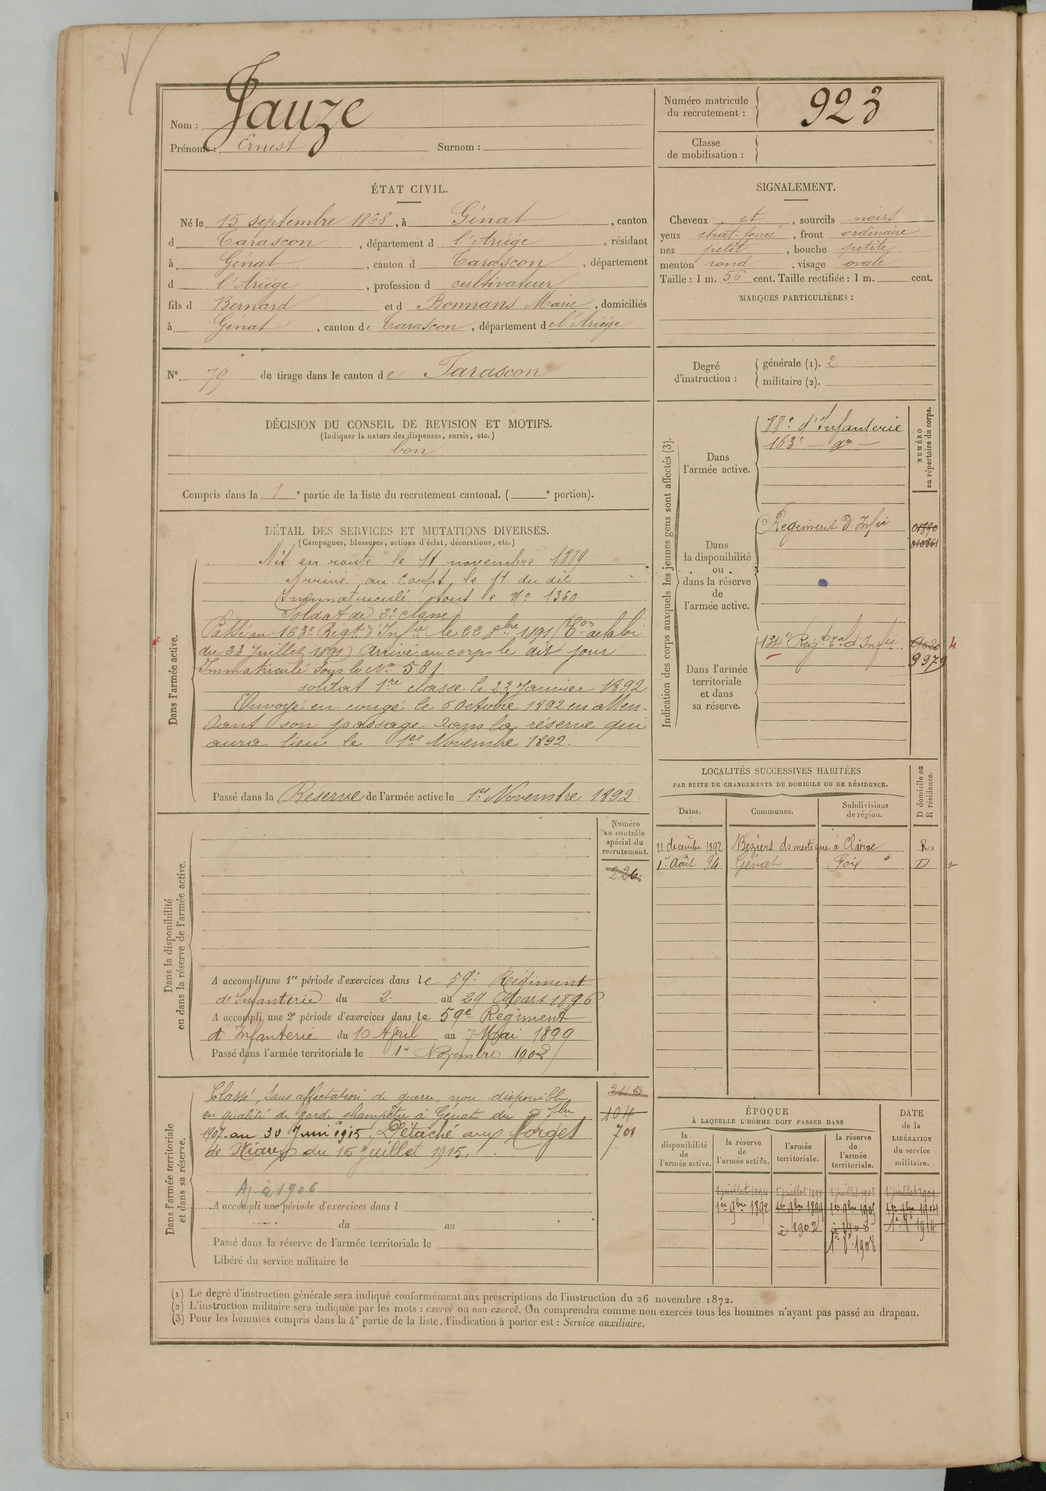 Nom : Jauze
Prénoms : Ernest Surnom :
Numéro matricule du recrutement : 923
Classe de mobilisation :
ÉTAT CIVIL.
Né le 15 septembre 1868, à Génat, canton
d Tarascon, département d l'Ariège, résidant
à Génat, canton d Tarascon, département
d l'Ariège, profession d cultivateur
fils d Bernard et d Bonnans Marie, domiciliés
à Génat, canton de Tarascon, département de l'Ariège
SIGNALEMENT.
Cheveux et, sourcils noirs
yeux chat. foncé, front ordinaire
nez petit, bouche petite
menton rond, visage ovale
Taille : 1 m. 56 cent. Taille rectifiée : 1 m. cent.
MARQUES PARTICULIÈRES :
N° 79 de tirage dans le canton de Tarascon
Degré d'instruction : générale (1). 2
militaire (2).
DÉCISION DU CONSEIL DE REVISION ET MOTIFS.
(Indiquer la nature des dispenses, sursis, etc.)
bon
Compris dans la 1e partie de la liste du recrutement cantonal. ( e portion).
DÉTAIL DES SERVICES ET MUTATIONS DIVERSES.
(Campagnes, blessures, actions d'éclat, décorations, etc.)
Dans l'armée active.
Mis en route le 11 novembre 1889
Arrivé au corps le 11 du dit
Immatriculé sous le N° 1360
Soldat de 2e classe
Passé au 163e Régt d'Infie le 22 8bre 1891 de la loi
du 23 Juillet 1891) Arrivé au corps le dit jour
Immatriculé sous le No 581
soldat 1re classe le 23 Janvier 1892
Envoyé en congé le 5 Octobre 1892 en atten-
dant son passage dans la réserve qui
aura lieu le 1er Novembre 1892.
Passé dans la Réserve de l'armée active le 1er Novembre 1892
Indication des corps auxquels les jeunes gens sont affectés (3).
NUMÉRO au répertoire du corps.
Dans l'armée active.
88e d'Infanterie
163e — do —
Dans la disponibilité ou dans la réserve de l'armée active.
Régiment d'Infie
Dans l'armée territoriale et dans sa réserve.
134e Régt tal d'Infie
9979
LOCALITÉS SUCCESSIVES HABITÉES
PAR SUITE DE CHANGEMENTS DE DOMICILE OU DE RÉSIDENCE.
Dates. Communes. Subdivisions de région. D domicile ou R résidence.
11 décembre 1892 Béziers domestique à R.
1er Août 94 Génat Foix D
Dans la disponibilité ou dans la réserve de l'armée active.
Numéro au contrôle spécial du recrutement.
226
A accompli une 1re période d'exercices dans le 59e Régiment
d'Infanterie du 2 au 29 Mars 1896
A accompli une 2e période d'exercices dans le 59e Régiment
d'Infanterie du 10 April au 7 Mai 1899
Passé dans l'armée territoriale le 1er Novembre 1902
Dans l'armée territoriale et dans sa réserve.
Classé, sans affectation de guerre, non disponible
en qualité de garde champêtre à Génat du
1907 au 30 Juin 1915. Détaché aux Forges
de Niaux du 15 Juillet 1915.
104
701
Aj. à 1906
A accompli une période d'exercices dans l
du au
Passé dans la réserve de l'armée territoriale le
Libéré du service militaire le
ÉPOQUE
À LAQUELLE L'HOMME DOIT PASSER DANS
la disponibilité de l'armée active. la réserve de l'armée active. l'armée territoriale. la réserve de l'armée territoriale.
DATE de la LIBÉRATION du service militaire.
1er 9bre 1892 1er 9bre 1899
1902
1908
(1) Le degré d'instruction générale sera indiqué conformément aux prescriptions de l'instruction du 26 novembre 1872.
(2) L'instruction militaire sera indiquée par les mots : exercé ou non exercé. On comprendra comme non exercés tous les hommes n'ayant pas passé au drapeau.
(3) Pour les hommes compris dans la 4e partie de la liste, l'indication à porter est : Service auxiliaire.